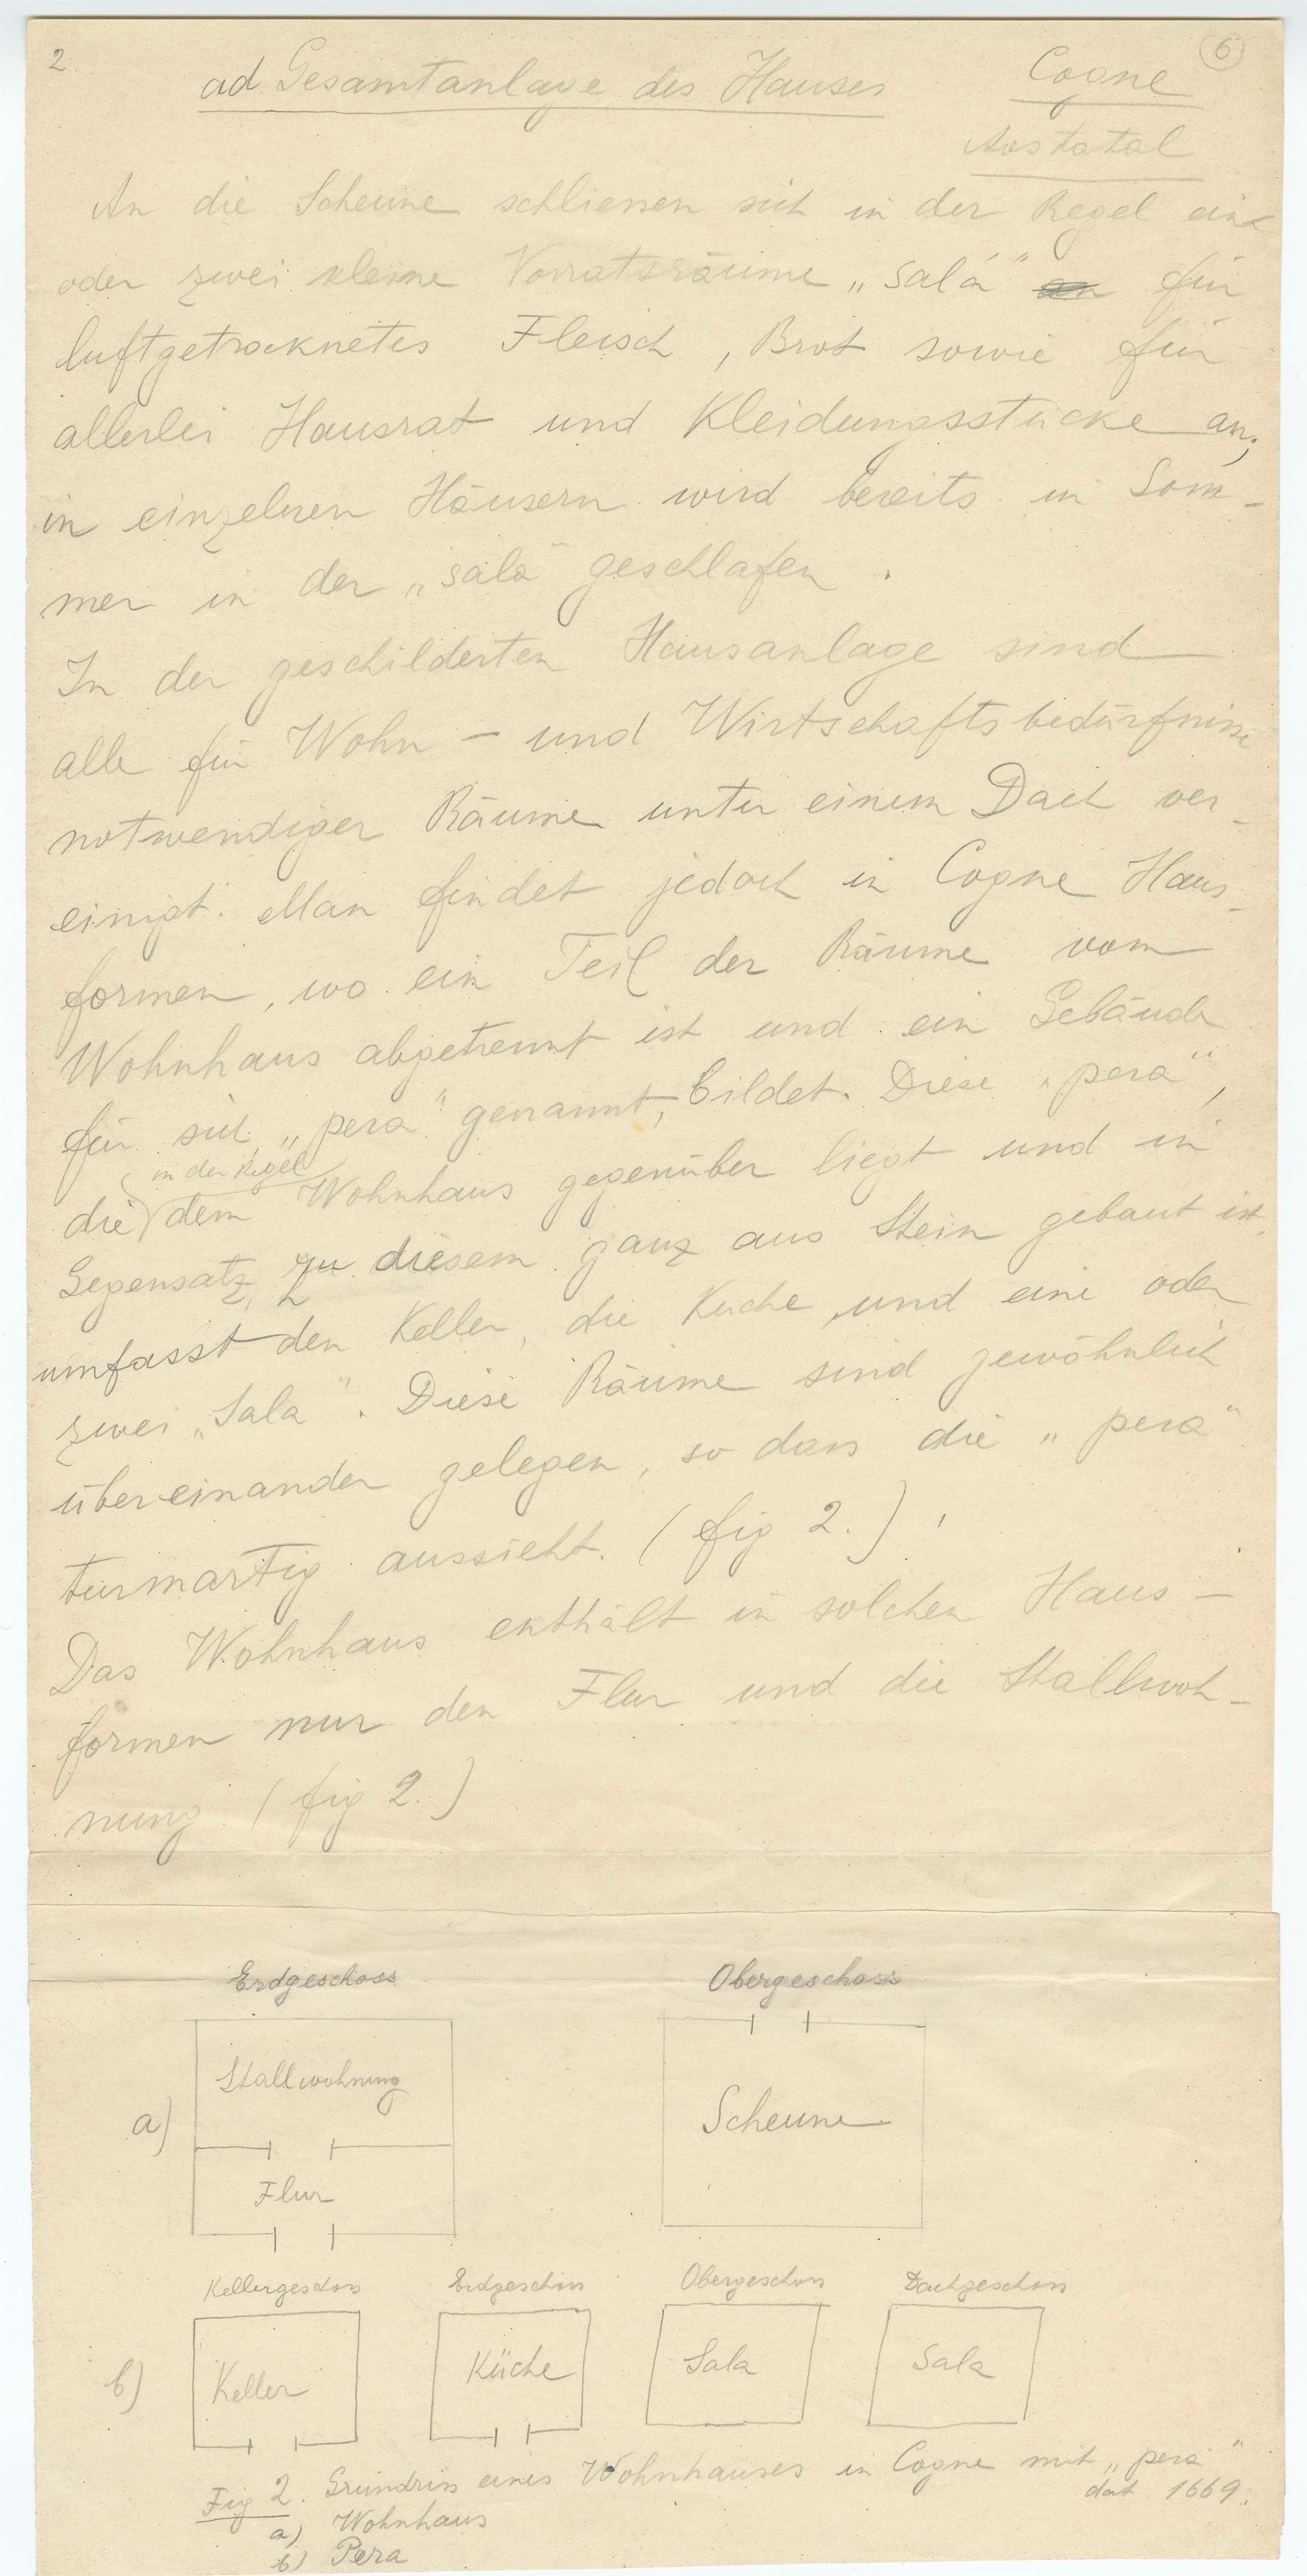 2.
6
ad Gesamtanlage des Hauses
Cogne
Aostatal
An die Scheune schliessen sich in der Regel eine
oder zwei kleine Vorratsräume „sala" für
luftgetrocknetes Fleisch, Brot sowie für
allerlei Hausrat und Kleidungsstücke an;
in einzelnen Häusern wird bereits in Som-
mer in der „sala" geschlafen.
In der geschilderten Hausanlage sind
alle für Wohn- und Wirtschaftsbedürfnisse
notwendiger Räume unter einem Dach ver-
einigt. Man findet jedoch in Cogne Haus-
formen, wo ein Teil der Räume vom
Wohnhaus abgetrennt ist und ein Gebäude
für sich „pera" genannt, bildet. Diese „pera",
in der Regel
die dem Wohnhaus gegenüber liegt und in
Gegensatz zu diesem ganz aus Stein gebaut ist,
umfasst den Keller, die Küche und eine oder
zwei „Sala". Diese Räume sind gewöhnlich
übereinander gelegen, so dass die „pera"
turmartig aussieht. (fig 2.)
Das Wohnhaus enthält in solchen Haus-
formen nur den Flur und die Stallwoh-
nung (fig 2.)
Erdgeschoss
Obergeschoss
Stallwohnung
a)
Scheune
Flur
Kellergeschoss
Erdgeschoss
Obergeschoss
Dachgeschoss
b)
Keller
Küche
Sala
Sala
Fig 2. Grundriss eines Wohnhauses in Cogne mit „pera"
dat 1669.
a) Wohnhaus
b) Pera